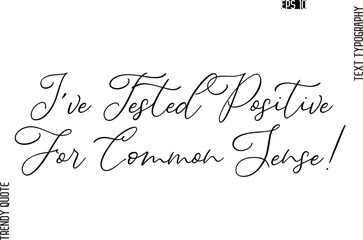 EPS 10
TEXT TYPOGRAPHY
I've Tested Positive
For Common Sense!
TRENDY QUOTE